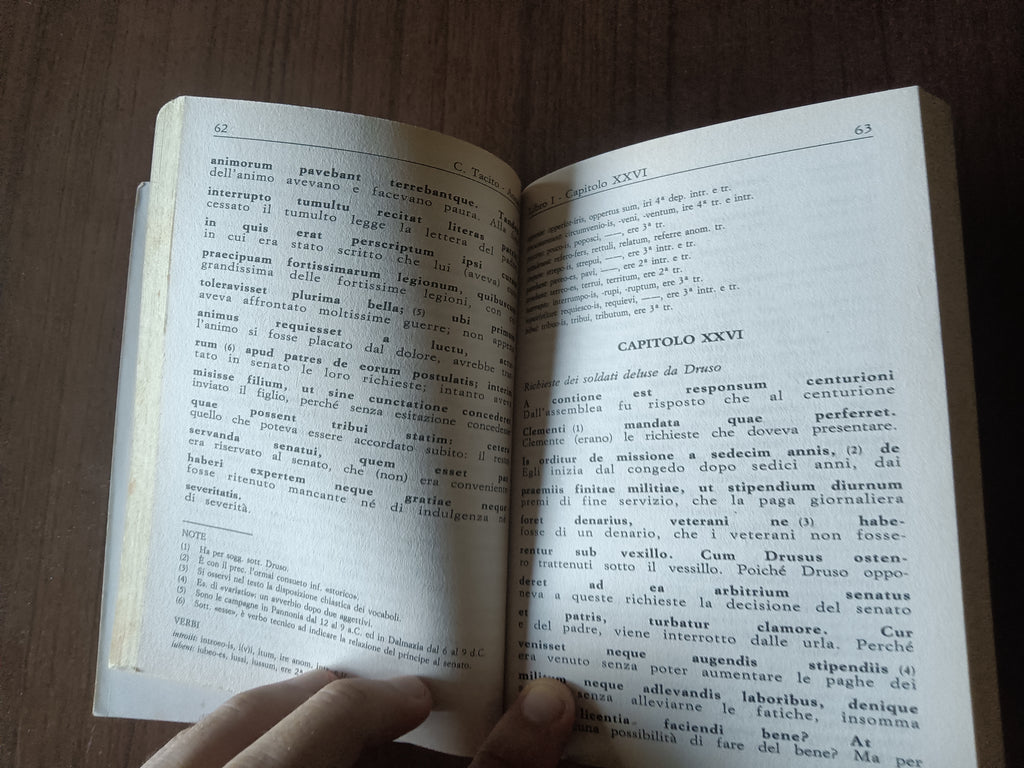 62
C. Tacito -
animorum pavebant terrebantque.
dell'animo avevano e facevano paura. Alla
interrupto tumultu recitat literas
cessato il tumulto legge la lettera del
in quis erat perscriptum ipsi
in cui era stato scritto che lui (aveva)
praecipuam fortissimarum legionum, quibuscum
grandissima delle fortissime legioni, con
toleravisset plurima bella; (5) ubi primum
aveva affrontato moltissime guerre; non appena
animus requiesset a luctu,
l'animo si fosse placato dal dolore, avrebbe
rum (6) apud patres de eorum postulatis; interim
tato in senato le loro richieste; intanto aveva
misisse filium, ut sine cunctatione concederet
inviato il figlio, perché senza esitazione concedesse
quae possent tribui statim: cetera
quello che poteva essere accordato subito: il resto
servanda senatui, quem esset
era riservato al senato, che (non) era conveniente
haberi expertem neque gratiae neque
fosse ritenuto mancante né di indulgenza né
severitatis.
di severità.
NOTE
(1) Ha per sogg. sott. Druso.
(2) È con il prec. l'ormai consueto inf. «storico».
(3) Si osservi nel testo la disposizione chiastica dei vocaboli.
(4) Es. di «variatio»: un avverbio dopo due aggettivi.
(5) Sono le campagne in Pannonia dal 12 al 9 a.C. ed in Dalmazia dal 6 al 9 d.C.
(6) Sott. «esse», è verbo tecnico ad indicare la relazione del principe al senato.
VERBI
introiit: introeo-is, i(v)i, itum, ire anom.
iubent: iubeo-es, iussi, iussum, ere 2ª
63
Libro I - Capitolo XXVI
opperior-iris, oppertus sum, iri 4ª dep. intr. e tr.
circumvenio-is, -veni, -ventum, ire 4ª tr. e intr.
posco-is, poposci, ——, ere 3ª tr.
refero-fers, rettuli, relatum, referre anom. tr.
strepo-is, strepui, ——, ere 3ª intr. e tr.
paveo-es, pavi, ——, ere 2ª intr. e tr.
terreo-es, terrui, territum, ere 2ª tr.
interrumpo-is, -rupi, -ruptum, ere 3ª tr.
requiesco-is, requievi, ——, ere 3ª intr. e tr.
tribuo-is, tribui, tributum, ere 3ª tr.
CAPITOLO XXVI
Richieste dei soldati deluse da Druso
A contione est responsum centurioni
Dall'assemblea fu risposto che al centurione
Clementi (1) mandata quae perferret.
Clemente (erano) le richieste che doveva presentare.
Is orditur de missione a sedecim annis, (2) de
Egli inizia dal congedo dopo sedici anni, dai
praemiis finitae militiae, ut stipendium diurnum
premi di fine servizio, che la paga giornaliera
foret denarius, veterani ne (3) habe-
fosse di un denario, che i veterani non fosse-
rentur sub vexillo. Cum Drusus osten-
ro trattenuti sotto il vessillo. Poiché Druso oppo-
deret ad ea arbitrium senatus
neva a queste richieste la decisione del senato
et patris, turbatur clamore. Cur
e del padre, viene interrotto dalle urla. Perché
venisset neque augendis stipendiis (4)
era venuto senza poter aumentare le paghe dei
militum neque adlevandis laboribus, denique
senza alleviarne le fatiche, insomma
licentia faciendi bene? At
possibilità di fare del bene? Ma per